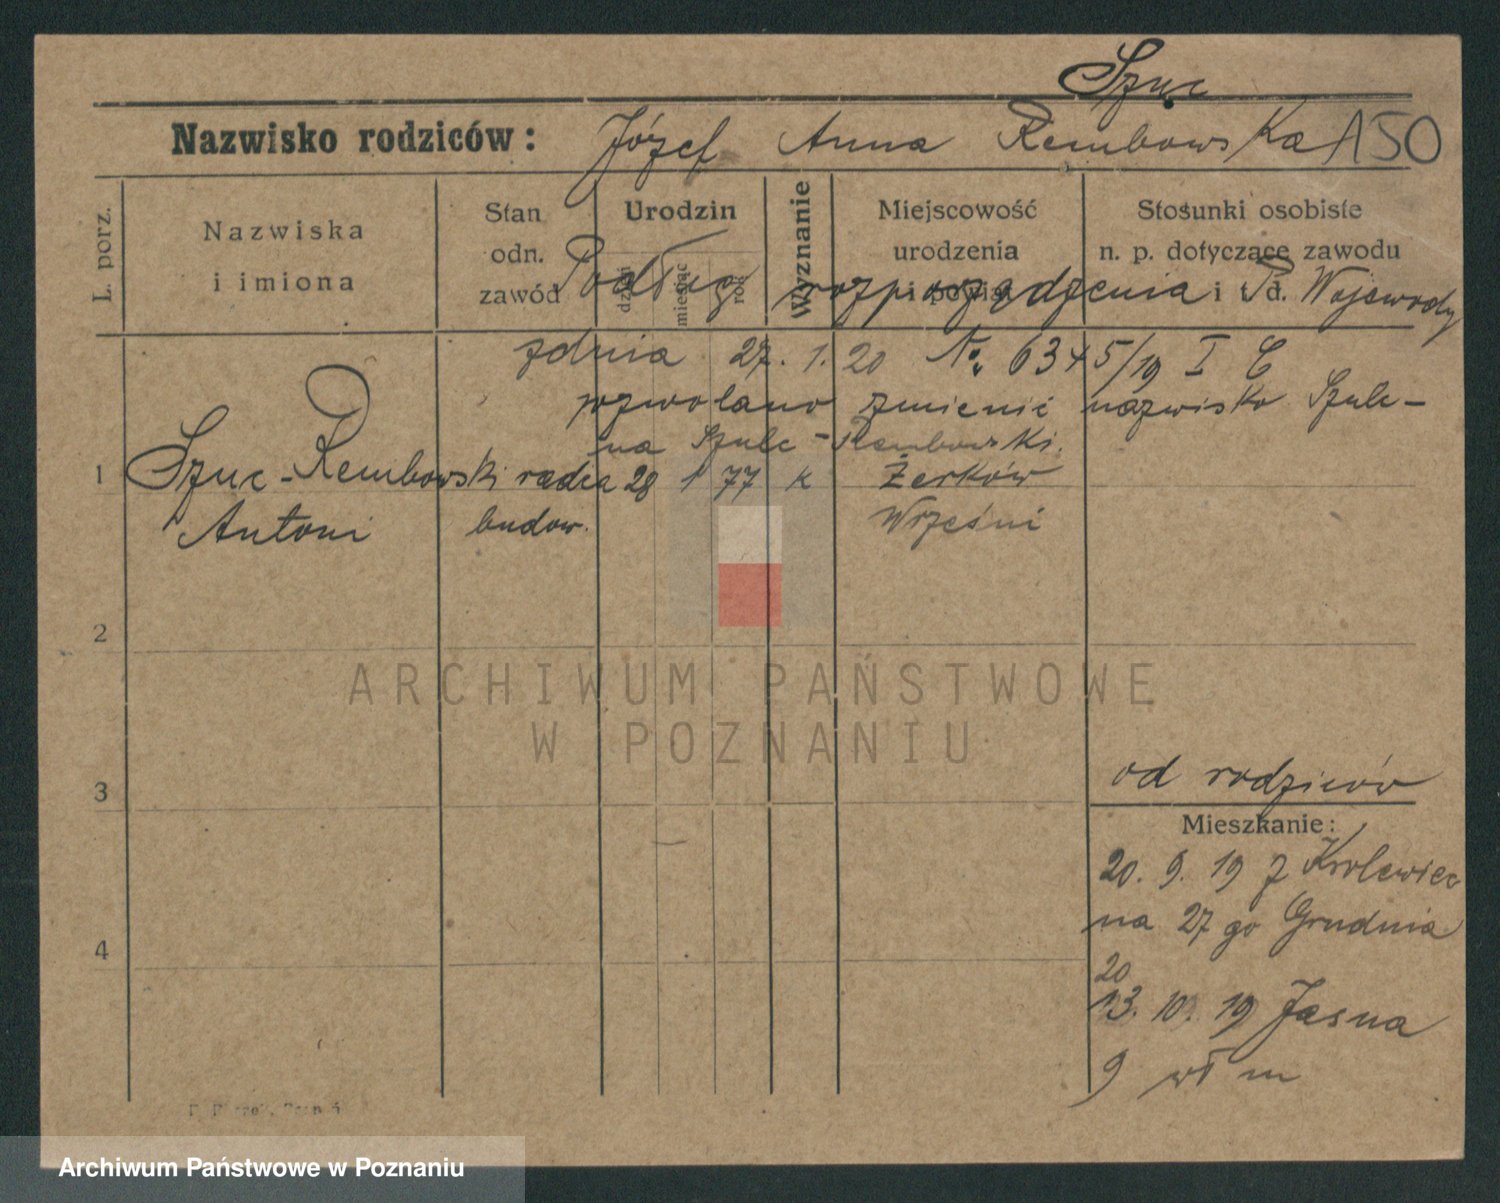 Szuc
Nazwisko rodziców: Józef Anna Rembowska A50
L. porz.
Nazwiska i imiona
Stan odn. zawód
Urodzin
dzień
miesiąc
rok
Wyznanie
Miejscowość urodzenia i powiat
Stosunki osobiste n. p. dotyczące zawodu i t. d.
Podług rozporządzenia P. Wojewody
zdnia 27. 1. 20 No. 6345/19 I C
pozwolano zmienić nazwisko Szulc-
na Szulc - Rembowski.
1 Szuc-Rembowski radca 28 1 77 k Żerków
Antoni budow. Wrześni
2
3
4
od rodziców
Mieszkanie:
20. 9. 19 z Krolewiec
na 27 go Grudnia
20
13. 10. 19 Jasna
9 wł m
ARCHIWUM PAŃSTWOWE
W POZNANIU
Archiwum Państwowe w Poznaniu